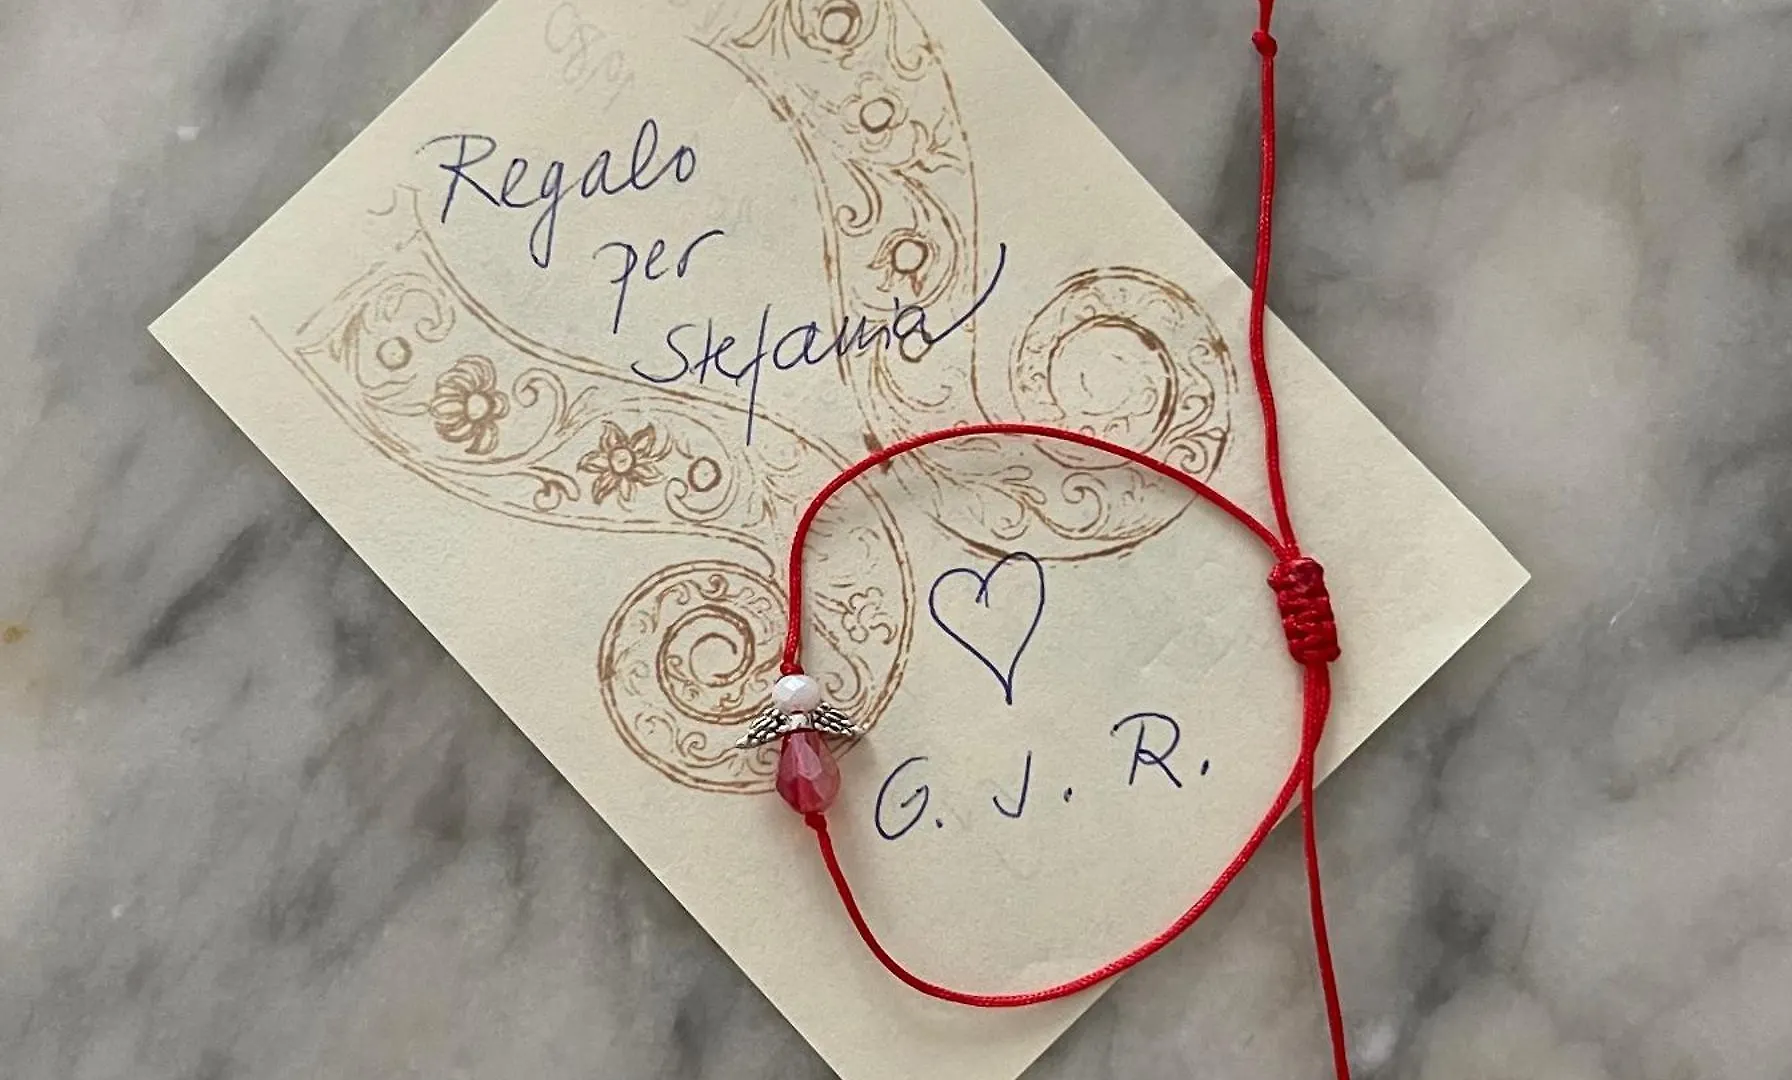 Regalo
per
Stefania
G. J. R.